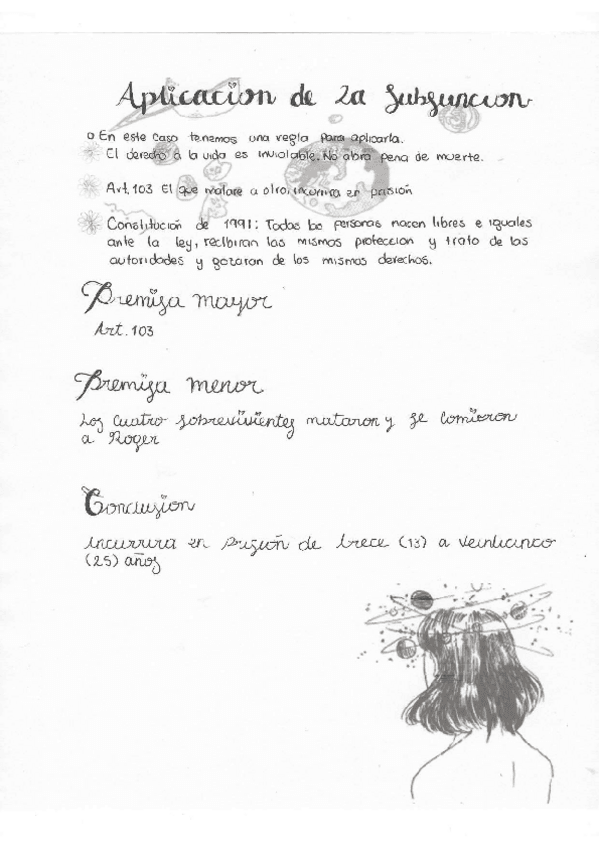 Aplicacion de la Subsuncion
o En este caso tenemos una regla para aplicarla.
El derecho a la vida es inviolable. No abra pena de muerte.
Art. 103 El que matare a otro, incurrira en prisión
Constitución de 1991: Todas las personas nacen libres e iguales
ante la ley, recibiran las mismos proteccion y trato de las
autoridades y gozaran de los mismos derechos.
Premisa mayor
Art. 103
Premisa menor
Los cuatro sobrevivientes mataron y se comieron
a Roger
Conclusion
incurrira en prisión de trece (13) a veinticinco
(25) años